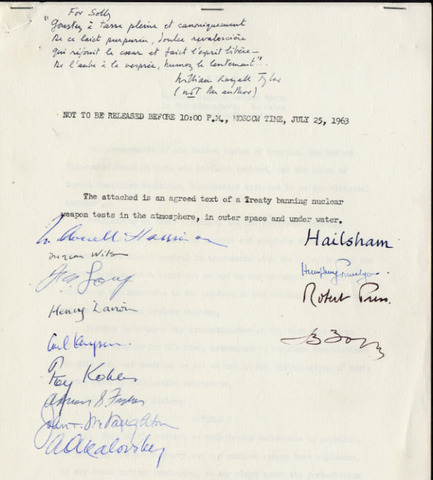 For Solly
"Goustez à tasse pleine et canoniquement
De ce laict purpurin, doulce revalescière
qui rejouit le coeur et faict l'esprit libère—
De l'aube à la vesprée, humez le lentement".
William Royall Tyler
(not the author)
NOT TO BE RELEASED BEFORE 10:00 P.M., MOSCOW TIME, JULY 25, 1963
The attached is an agreed text of a Treaty banning nuclear
weapon tests in the atmosphere, in outer space and under water.
W. Averell Harriman
Duncan Wilson
Long
Henry Darwin
Carl Kaysen
Foy Kohler
Adrian S. Fisher
John T. McNaughton
A Akalovsky
Hailsham
Humphrey Trevelyan
Robert Press